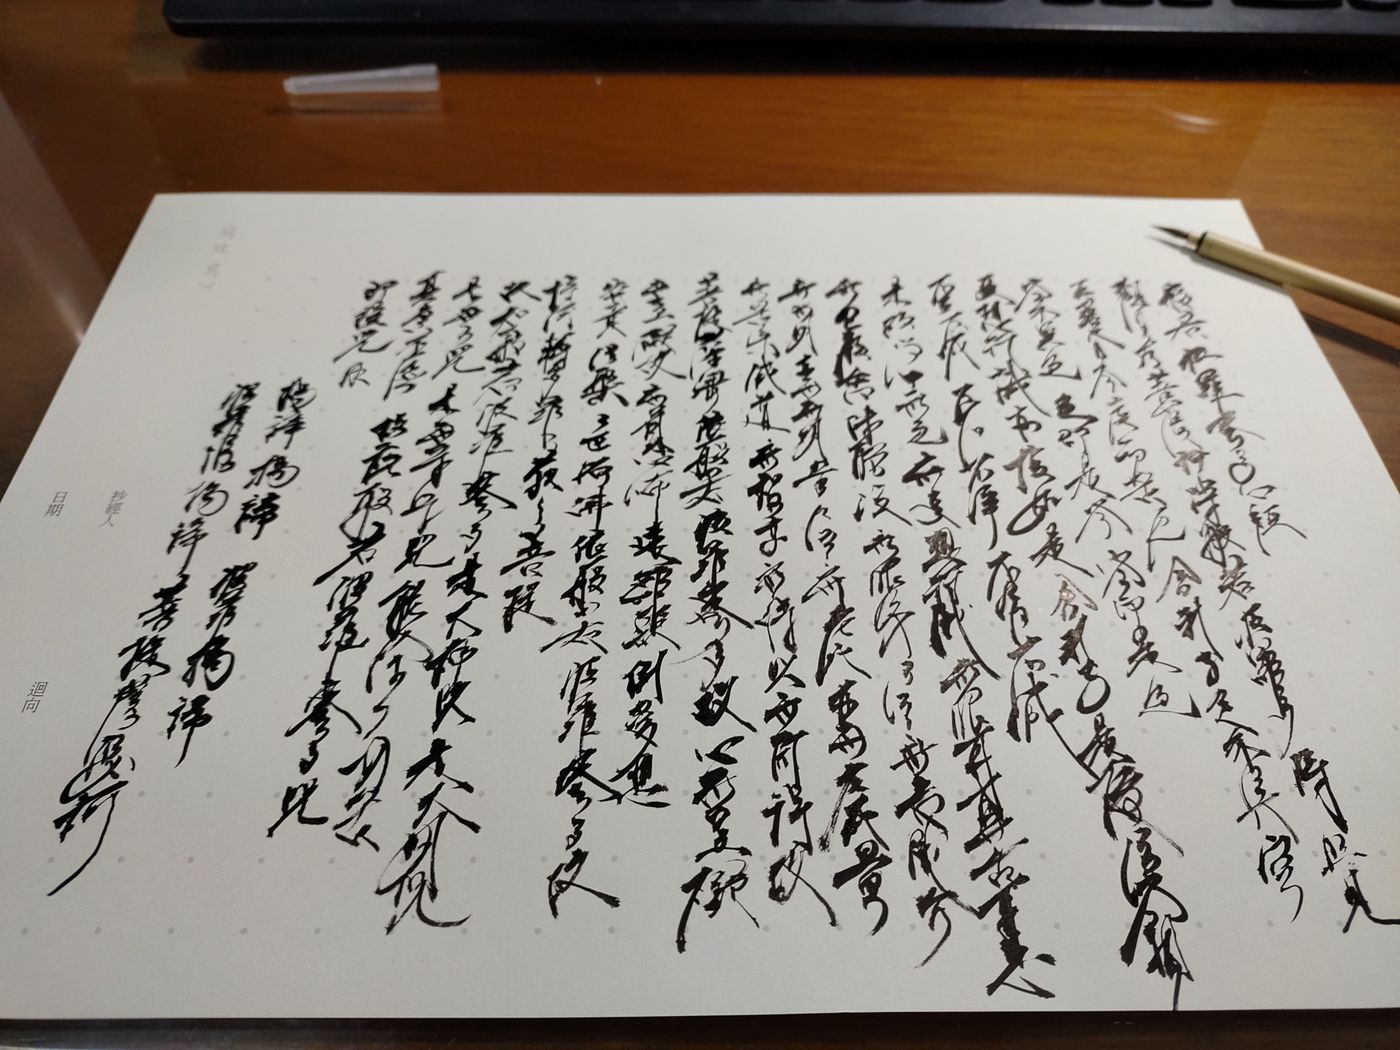 般若波羅蜜多心經
觀自在菩薩行深般若波羅蜜多時照見
五蘊皆空度一切苦厄舍利子色不異空
空不異色色即是空空即是色
受想行識亦復如是舍利子是諸法空相
不生不滅不垢不淨不增不減
是故空中無色無受想行識無眼耳鼻舌身意
無色聲香味觸法無眼界乃至無意識界
無無明亦無無明盡乃至無老死亦無老死盡
無苦集滅道無智亦無得以無所得故
菩提薩埵依般若波羅蜜多故心無罣礙
無罣礙故無有恐怖遠離顛倒夢想
究竟涅槃三世諸佛依般若波羅蜜多故
得阿耨多羅三藐三菩提
故知般若波羅蜜多是大神咒是大明咒
是無上咒是無等等咒能除一切苦
真實不虛故說般若波羅蜜多咒
即說咒曰
揭諦揭諦波羅揭諦
波羅僧揭諦菩提薩婆訶
寫經寫心
抄經人
日期
迴向